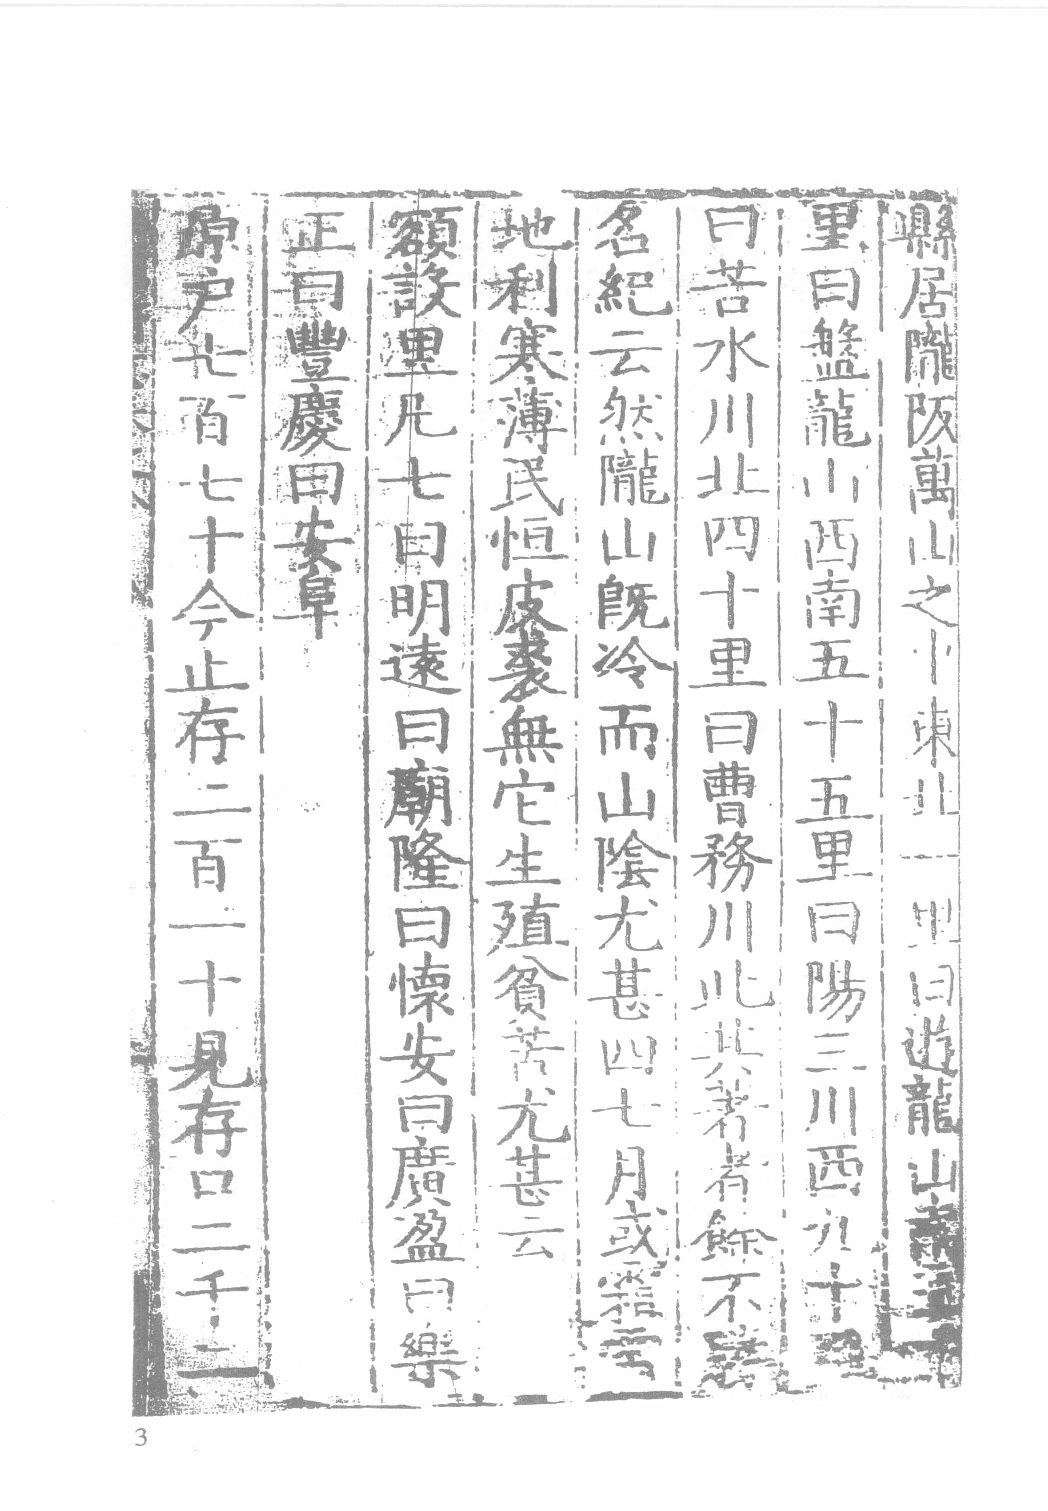 縣居隴阪萬山之中東北一里曰遊龍山南
里曰盤龍山西南五十五里曰陽三川西九十里
曰苦水川北四十里曰曹務川此其著者餘不
名紀云然隴山既冷而山陰尤甚四七月或霜雪
地利寒薄民恒皮裘無它生殖貧苦尤甚云
額設里凡七曰明遠曰廟隆曰懷安曰廣盈曰樂
正曰豐慶曰安阜
原戶七百七十今止存二百一十見存口二千二
3